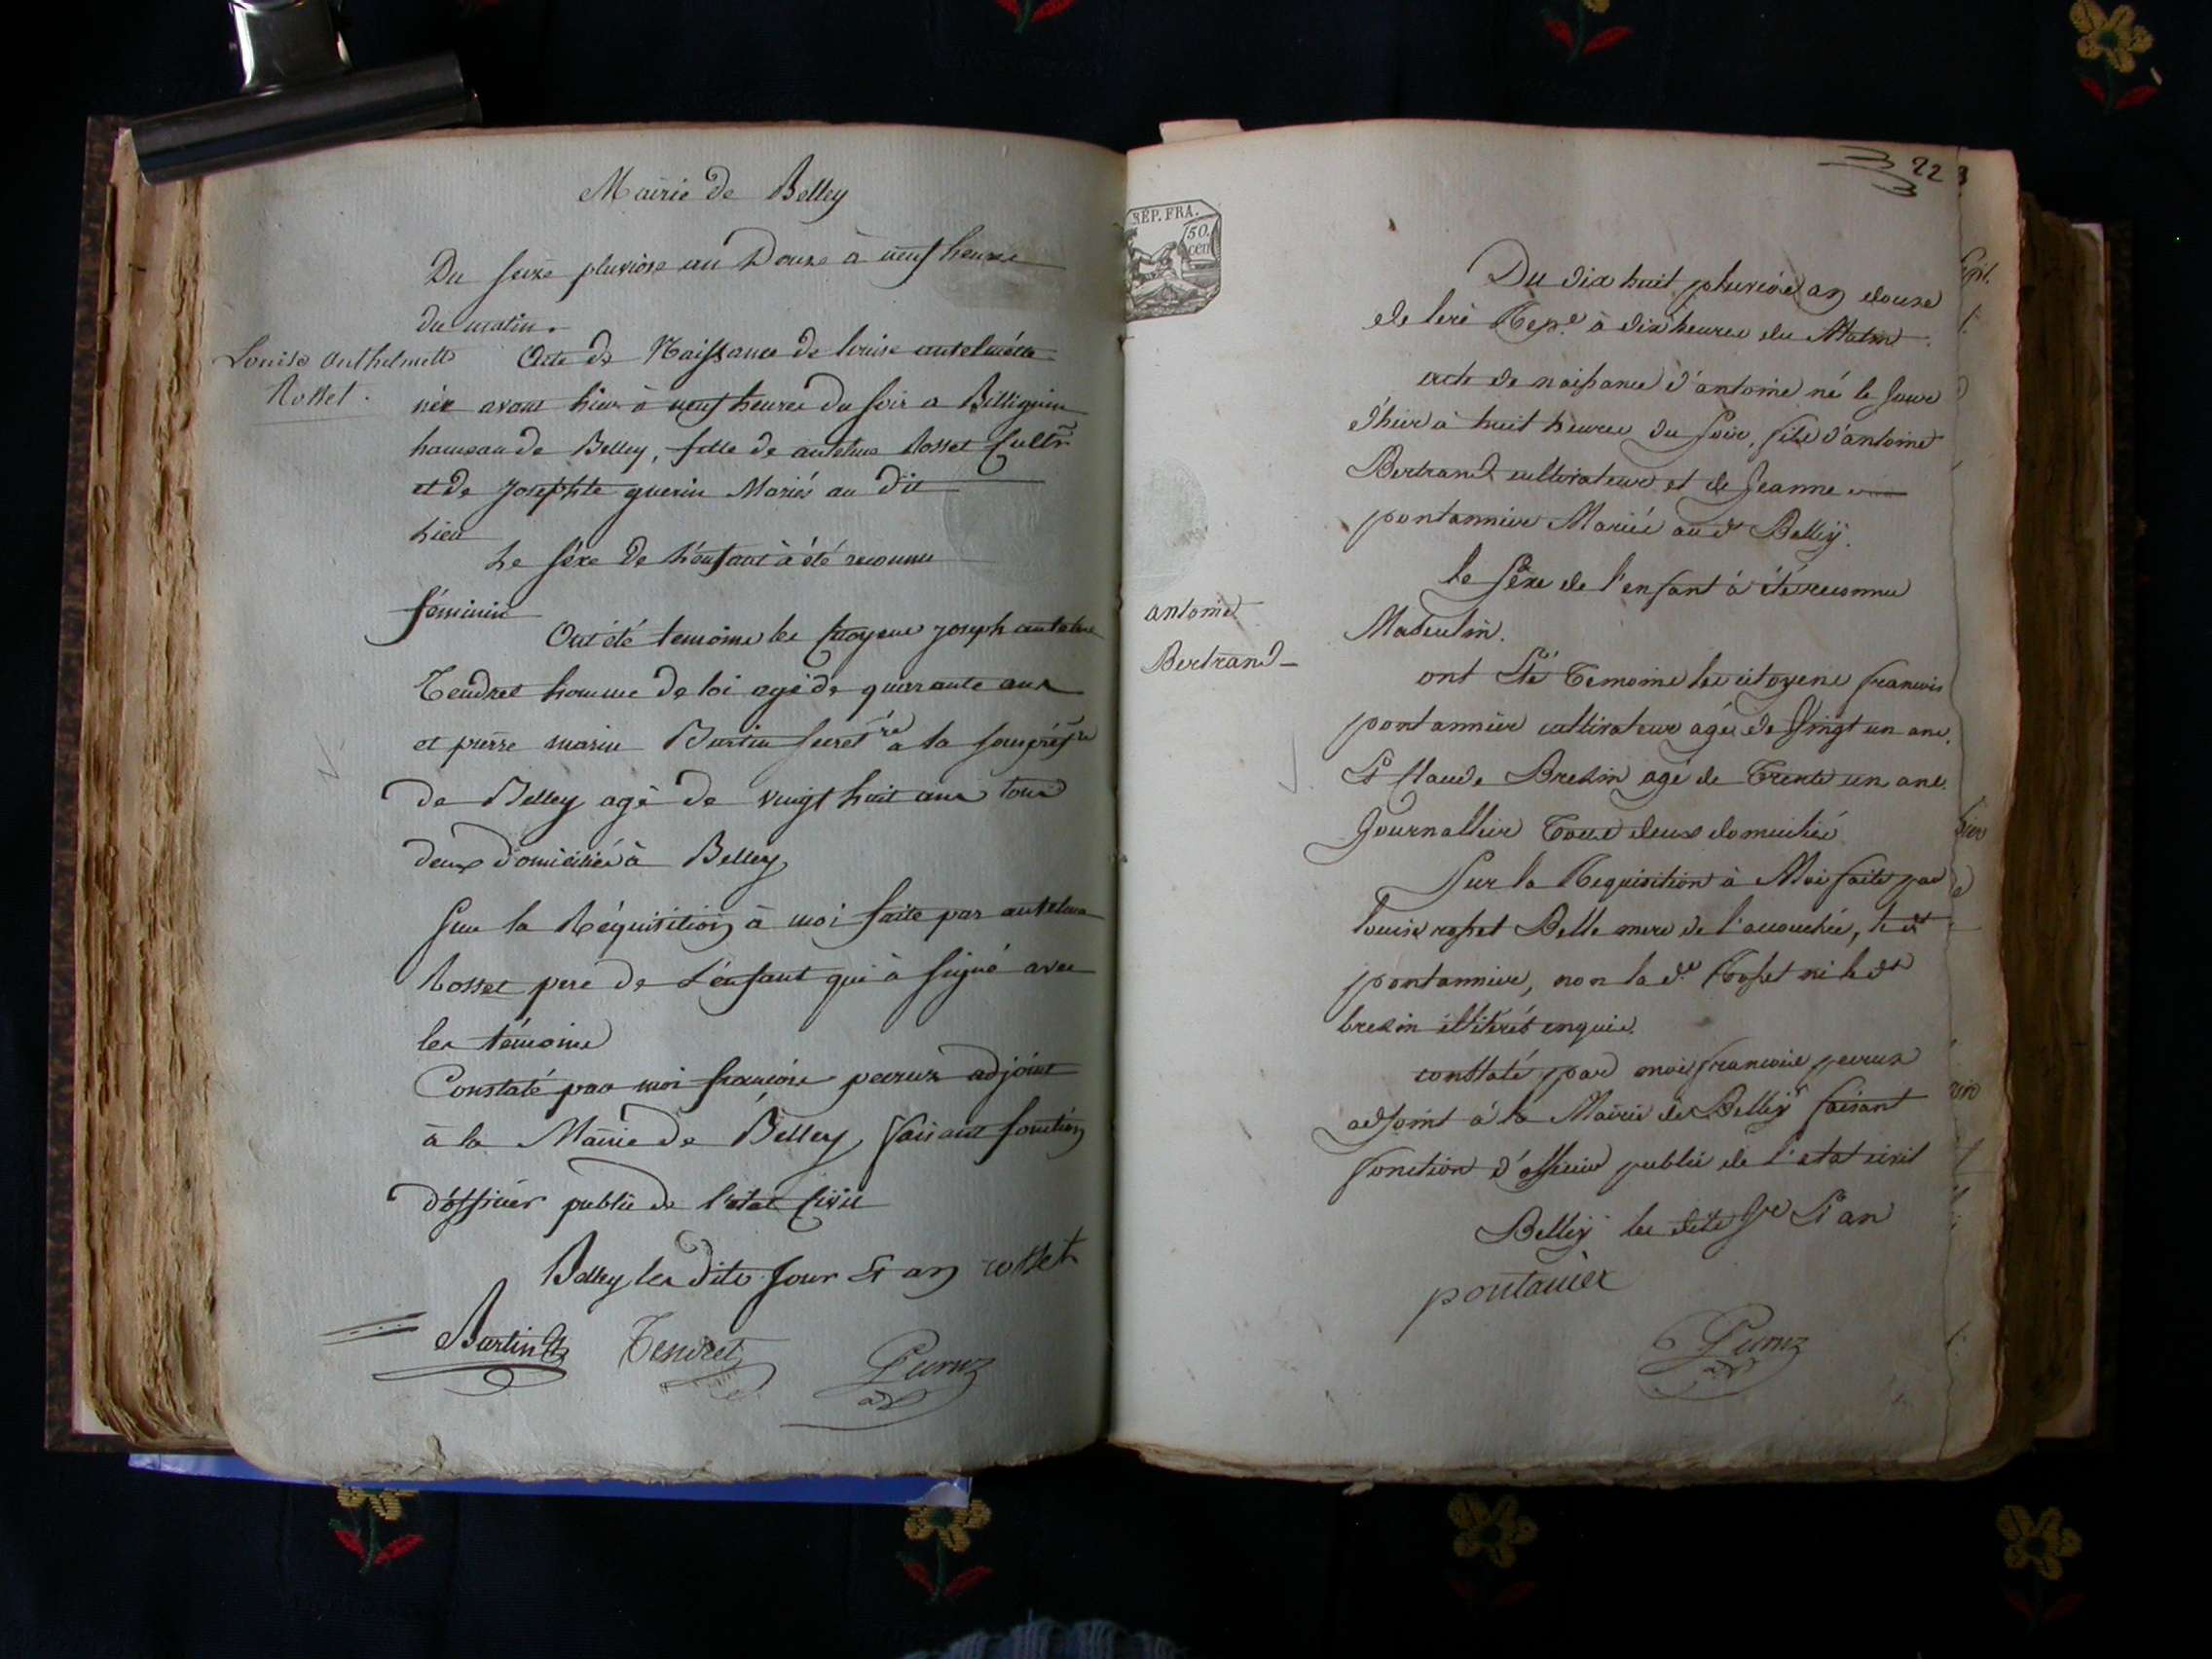 Mairie de Belley
Du seize pluviose an Douze à neuf heures
du matin.
Louise Anthelmette
Rosset.
Acte de Naissance de louise antelmette
née avant hier à neuf heures du soir a Billignin
hameau de Belley, fille de antelme Rosset Cultr
et de Josephte guerin Mariés au dit
Lieu
Le séxe de L'enfant à été reconnu
féminin
Ont été temoins les Citoyens joseph antelme
Tendret homme de loi agé de quarante ans
et pierre marin Burtin secretre a la souspréfre
de Belley agé de vingt huit ans tous
deux domiciliés à Belley
Sur la Réquisition à moi faite par antelme
Rosset pere de L'enfant qui à signé avec
les témoins
Constaté par moi francois peruz adjoint
à la Mairie de Belley, faisant fonction
d'officier public de l'état Civil
Belley les dits jour et an rosset
Burtin Tendret Peruz
adt
22
RÉP. FRA.
50.
cen
Du dix huit pluviose an douze
de lere Repe à dix heures du Matin
acte de naissance d'antoine né le jour
d'hier à huit heures du soir, fils d'antoine
Bertrand cultivateur et de Jeanne
pontannier Mariés aud Belley.
le séxe de l'enfant à été reconnu
Masculin.
antoine
Bertrand
ont Eté Temoins les citoyens francois
pontannier cultivateur agé de Vingt un ans.
Et Claude Bresin agé de Trente un ans.
Journallier Tous deux domiciliés
Sur la Requisition à Moi faite par
louise rosset Belle mere de l'accouchée, le dt
pontannier, non la de Rosset ni le dt
bresin illitérés enquis.
constaté par moi francois peruz
adjoint à la Mairie de Belley faisant
fonction d'officier public de l'etat civil
Belley les dits jr Et an
pontanier
Peruz
adt